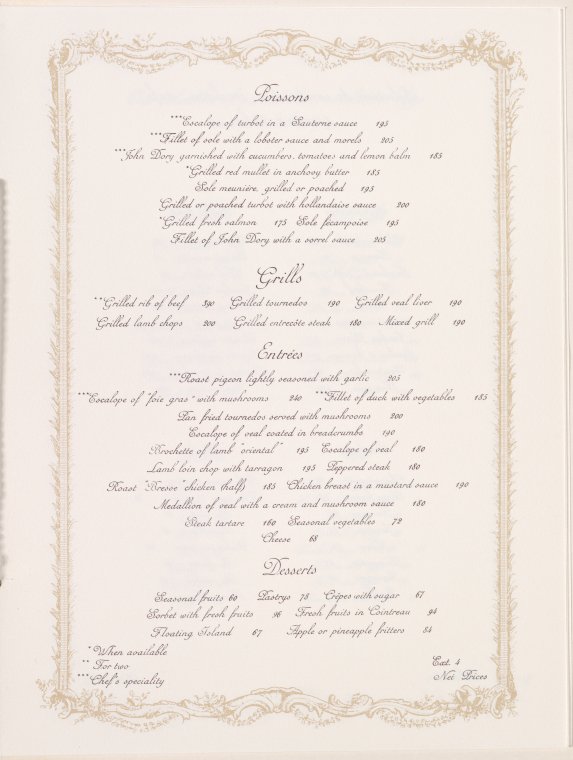 Poissons
***Escalope of turbot in a Sauterne sauce 195
***Fillet of sole with a lobster sauce and morels 205
***John Dory garnished with cucumbers, tomatoes and lemon balm 185
*Grilled red mullet in anchovy butter 185
Sole meunière, grilled or poached 195
Grilled or poached turbot with hollandaise sauce 200
*Grilled fresh salmon 175 Sole fécampoise 195
Fillet of John Dory with a sorrel sauce 205
Grills
**Grilled rib of beef 390 Grilled tournedos 190 Grilled veal liver 190
Grilled lamb chops 200 Grilled entrecôte steak 180 Mixed grill 190
Entrées
***Roast pigeon lightly seasoned with garlic 205
***Escalope of "foie gras" with mushrooms 240 ***Fillet of duck with vegetables 185
Pan fried tournedos served with mushrooms 200
Escalope of veal coated in breadcrumbs 190
Brochette of lamb "oriental" 195 Escalope of veal 180
Lamb loin chop with tarragon 195 Peppered steak 180
Roast "Bresse" chicken (half) 185 Chicken breast in a mustard sauce 190
Medallion of veal with a cream and mushroom sauce 180
Steak tartare 160 Seasonal vegetables 72
Cheese 68
Desserts
Seasonal fruits 60 Pastrys 78 Crêpes with sugar 67
Sorbet with fresh fruits 96 Fresh fruits in Cointreau 94
Floating Island 67 Apple or pineapple fritters 84
*When available
** For two
***Chef's speciality
Ext. 4
Net Prices